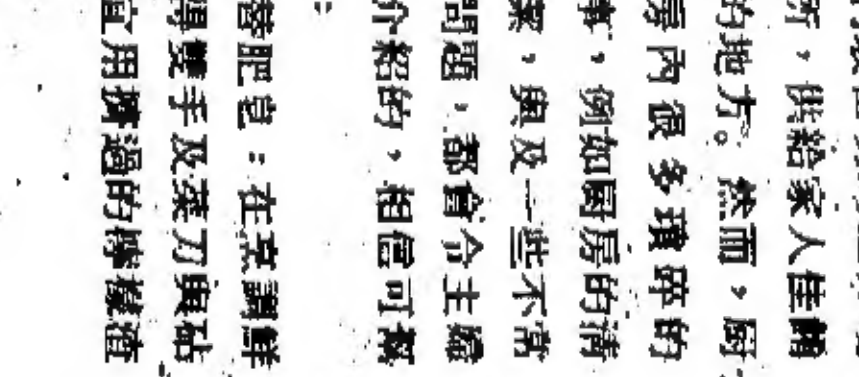 所，供給家人佳餚
的地方。然而，廚
房內很多瑣碎的
事，例如廚房的清
潔，與及一些不常
問題，都會令主婦
介紹的，相信可
善肥皂：在烹調鮮
雙手及菜刀與砧
宜用擠過的檸檬渣